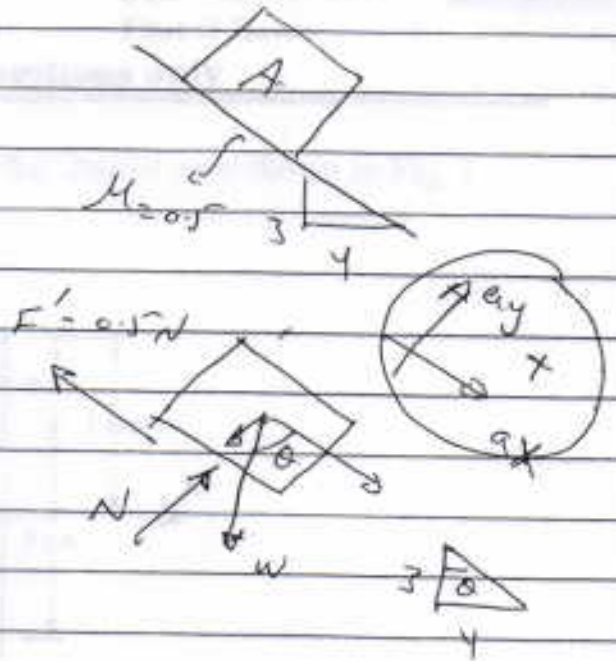 A
M=0.5
3
4
F' = 0.5N
ay
x
ax
θ
N
W
3 θ
4